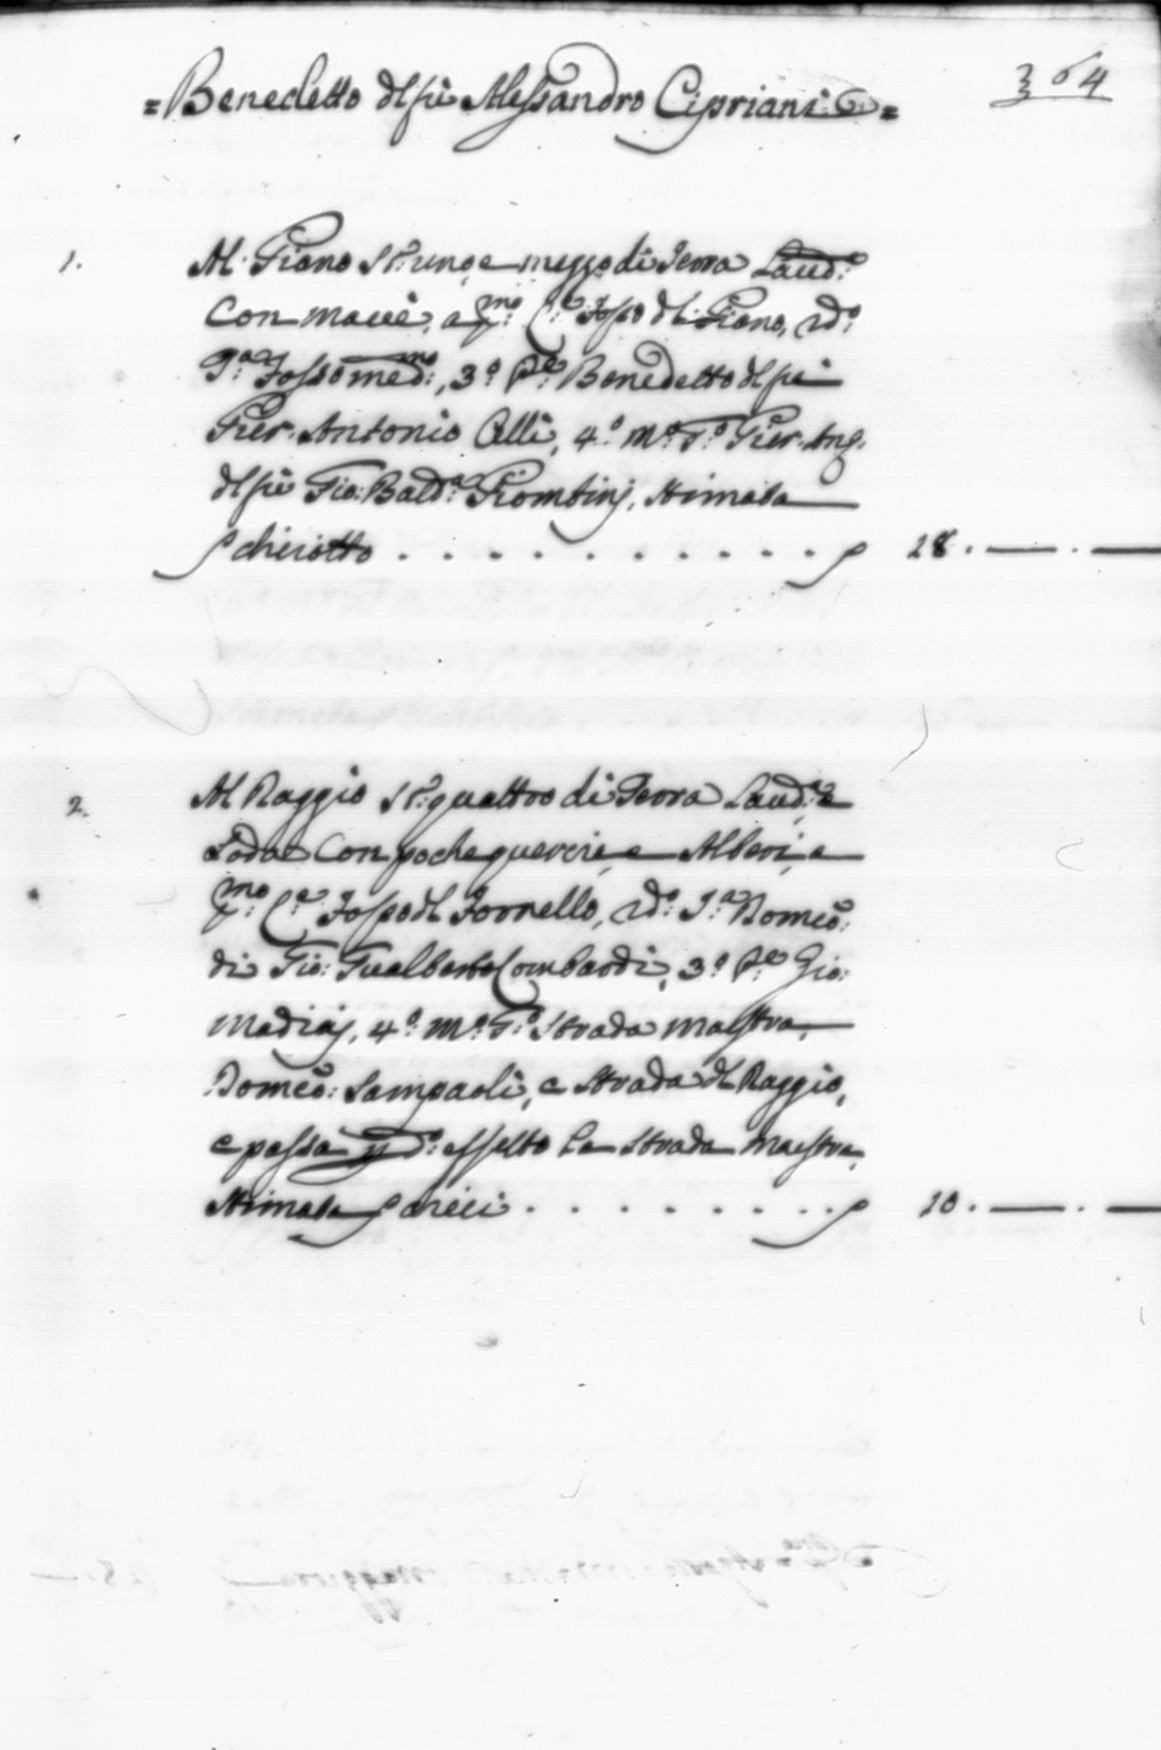 364
= Benedetto dl fù Alessandro Cipriani =
1. Al Piano St: uno, e mezzo di Terra Laud:a
Con mace, a p:mo C:e Fosso dl: Piano, 2d:o
P:a Fosso med:mo, 3:o P:e Benedetto dl fù
Pier Antonio Celli, 4:o m:o T:o Pier Ang.
dl fù Gio: Batt:a Piombinj, Stimata
p chiciotto . . . . . . . . . . . p 28. — . —
2. Al Raggio St: quattro di Terra Laud:a e
Soda Con poche quercie, e Alberi, a
p:mo C:e Fosso dl Fornello, 2d:o P:a Domco:
di Gio: Gualberto Lombardi, 3:o P:e Gio:
Madiaj, 4:o m:o T:o Strada maestra,
Domco: Sampaoli, e Strada dl Raggio,
e passa p d:o effetto la Strada Maestra,
Stimata p dieci . . . . . . . . . p 10. — . —